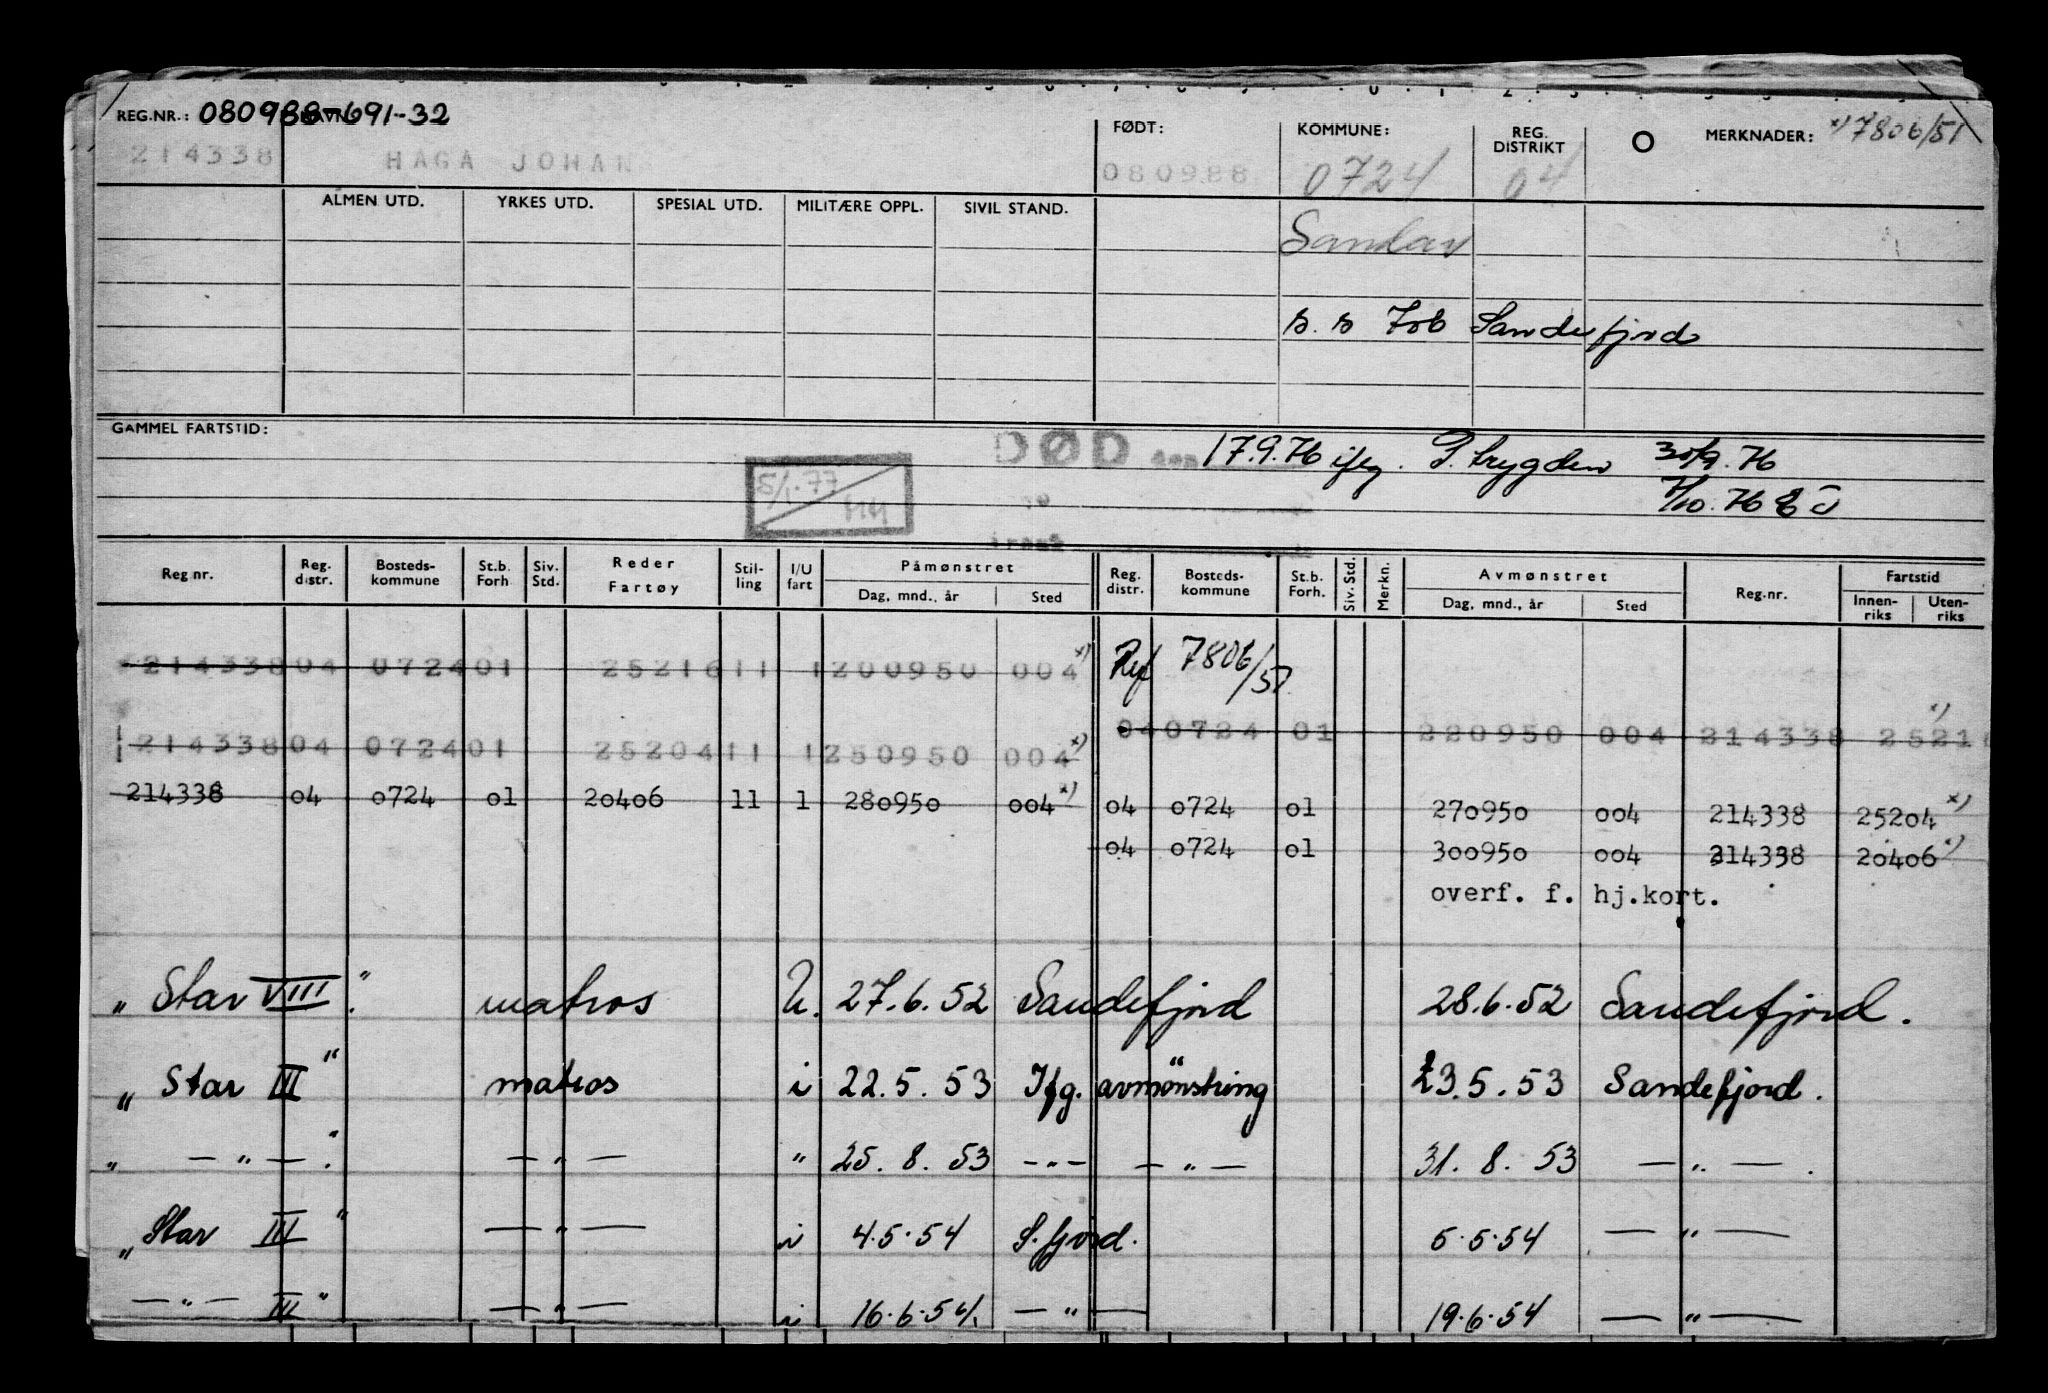 REG.NR.: 080988-691-32 FØDT: KOMMUNE: REG. DISTRIKT MERKNADER: x) 7806/51
214338 HAGA JOHAN 080988 0724 04
ALMEN UTD. YRKES UTD. SPESIAL UTD. MILITÆRE OPPL. SIVIL STAND.
Sandar
s. s Sandefjord
GAMMEL FARTSTID:
DØD den 17.9.76 iføg. trygden 30/9.76
5/1.77 7/10.76
Reg.nr. Reg. distr. Bosteds- kommune St.b. Forh Siv. Std. Reder Fartøy Stil- ling I/U fart Påmønstret Dag, mnd., år Sted Reg. distr. Bosteds- kommune St.b. Forh. Siv. Std. Merkn. Avmønstret Dag, mnd., år Sted Reg.nr. Fartstid Innen- riks Uten- riks
214338 04 0724 01 25216 11 1 200950 004 x) Ref 7806/51
04 0724 01 220950 004 214338 25216 x)
214338 04 0724 01 25204 11 1 250950 004 x)
214338 04 0724 01 20406 11 1 280950 004 x) 04 0724 01 270950 004 214338 25204 x)
04 0724 01 300950 004 214338 20406 x)
overf. f. hj.kort.
"Star VIII". matros U. 27.6.52 Sandefjord 28.6.52 Sandefjord.
"Star VI" matros i 22.5.53 Ifg. avmönstring 23.5.53 Sandefjord.
" — " — ". — " — " 25.8.53 - " - — " — 31.8.53 — " — .
"Star III" — " — i 4.5.54 S.fjord. 5.5.54 — " —
— " — III" — " — i 16.6.54. — " — 19.6.54 — " —